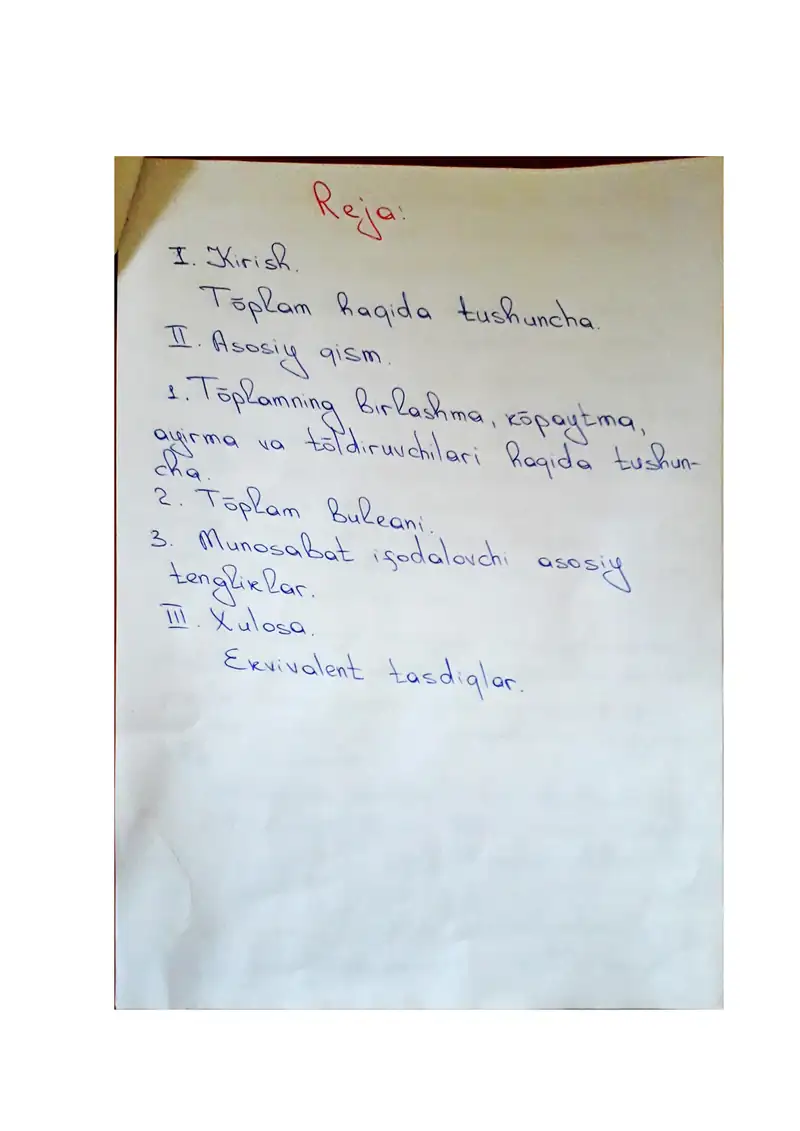 Reja:
I. Kirish.
Tōplam haqida tushuncha.
II. Asosiy qism.
1. Tōplamning birlashma, kōpaytma,
ayirma va tōldiruvchilari haqida tushun-
cha.
2. Tōplam buleani.
3. Munosabat ifodalovchi asosiy
tengliklar.
III. Xulosa.
Ekvivalent tasdiqlar.